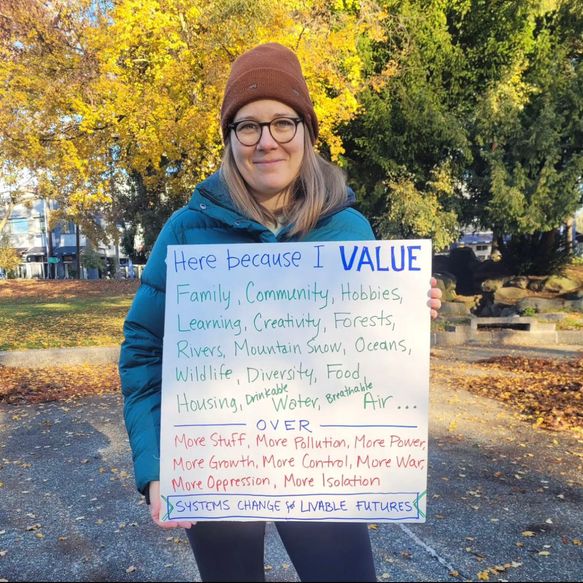 Here because I VALUE
Family, Community, Hobbies,
Learning, Creativity, Forests,
Rivers, Mountain Snow, Oceans,
Wildlife, Diversity, Food,
Housing, Drinkable Water, Breathable Air...
OVER
More Stuff, More Pollution, More Power,
More Growth, More Control, More War,
More Oppression, More Isolation
SYSTEMS CHANGE for LIVABLE FUTURES